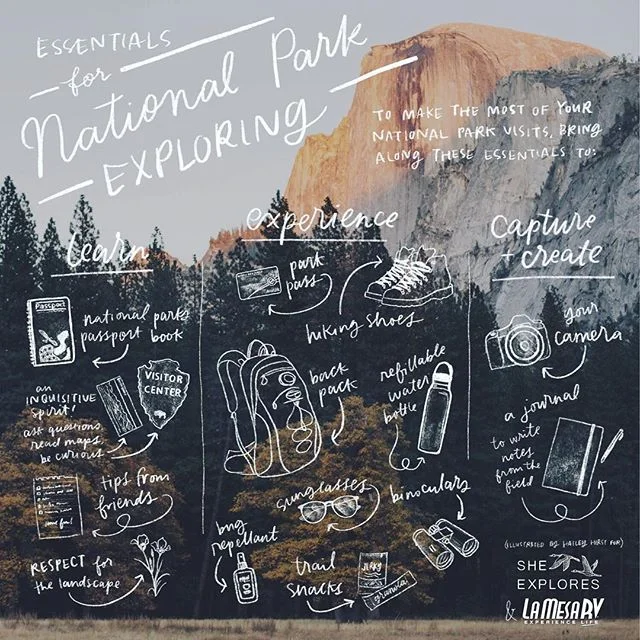 ESSENTIALS
for
National Park
EXPLORING
TO MAKE THE MOST OF YOUR
NATIONAL PARK VISITS, BRING
ALONG THESE ESSENTIALS TO:
learn
Passport
national park
passport book
an
INQUISITIVE
spirit!
ask questions,
read maps,
be curious
VISITOR
CENTER
tips from
friends
have fun!
RESPECT for
the landscape
experience
park
pass
hiking shoes
back
pack
refillable
water
bottle
sunglasses
binoculars
bug
repellant
trail
snacks
JERKY
granola
capture
+ create
your
camera
a journal
to write
notes
from the
field
(ILLUSTRATED BY HAILEY HIRST FOR)
SHE
EXPLORES
& LAMESA RV
EXPERIENCE LIFE